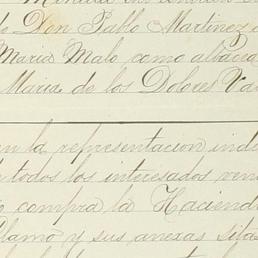 Don Pablo Martinez
Maria Malo, como albacea
Maria de los Dolores Va
en la representacion indi
todos los interesados ven
compra la Haciend
Alamo y sus anexas sitas